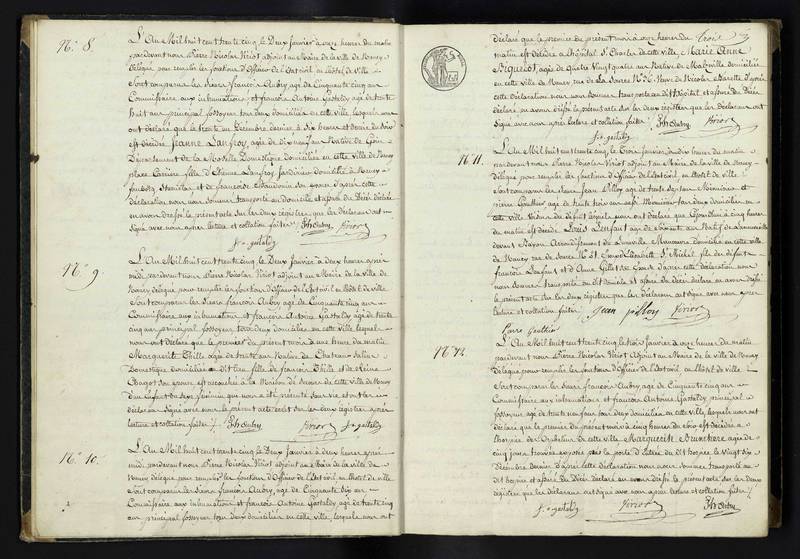 N.º 8.
L'An Mil huit cent trente cinq le Deux Janvier à onze heures du matin
pardevant nous Pierre Nicolas Viriot adjoint au Maire de la ville de Nancy
Délégué pour remplir les fonctions d'Officier de l'Etat civil en l'hôtel de ville
Sont comparus les Sieurs françois Aubry agé de Cinquante cinq ans
Commissaire aux inhumations, et françois Antoine Gastaldy agé de trente
huit ans principal fossoyeur tous deux domiciliés en cette ville, lesquels nous
ont déclaré que le trente un Décembre dernier à dix heures et demie du soir
est décédée Jeanne Lanfroy, agée de dix neuf ans Native de
Département de la Moselle Domestique domiciliée en cette ville de Nancy
place Carrière fille d'Etienne Lanfroy Jardinier domicilié à Nancy
faubourg Stanislas et de françoise son épouse d'après cette
déclaration nous nous sommes transporté au domicile et assuré du Décès déclaré
en avons dressé le présent acte sur les deux registres que les Déclarants ont
Signé avec nous après lecture et collation faites
Fs Aubry Viriot
f. a gastaldy
N.º 9.
L'An Mil huit cent trente cinq le Deux Janvier à deux heures après
midi pardevant nous Pierre Nicolas Viriot adjoint au Maire de la ville de
Nancy délégué pour remplir les fonctions d'Officier de l'Etat civil en l'hôtel de ville
Sont comparus les Sieurs françois Aubry, agé de Cinquante cinq ans
Commissaire aux inhumations et françois Antoine Gastaldy agé de trente
cinq ans principal fossoyeur tous deux domiciliés en cette ville, lesquels
nous ont déclaré que le premier du présent mois à une heure du matin
Marguerite Thille agée de trente ans Native de Chateau Salins
Domestique domiciliée au dit lieu fille de françois Thille et de Reine
son épouse est accouchée à la Maison de Secours de cette ville de Nancy
d'un enfant du sexe féminin que nous a été présenté sans vie et ont les
déclarants Signé avec nous le présent acte inscrit sur les deux registres après
lecture et collation faites
Fs Aubry Viriot f. a gastaldy
N.º 10.
L'An Mil huit cent trente cinq le Deux Janvier à deux heures après
midi, pardevant nous Pierre Nicolas Viriot adjoint au Maire de la ville de
Nancy délégué pour remplir les fonctions d'Officier de l'Etat civil en l'hôtel de ville
Sont comparus les Sieurs françois Aubry, agé de Cinquante cinq ans
Commissaire aux inhumations et françois Antoine Gastaldy agé de trente cinq
ans principal fossoyeur tous deux domiciliés en cette ville, lesquels nous ont
déclaré que le premier du présent mois à onze heures du trois
matin est décédée à l'hôpital St Charles de cette ville, Marie Anne
agée de Quatre Vingt quatre ans Native de domiciliée
en cette ville de Nancy, rue de la Source Nº Veuve de Nicolas d'après
cette déclaration nous nous sommes transporté au dit hôpital et assuré du Décès
déclaré en avons dressé le présent acte sur les deux registres que les Déclarants ont
Signé avec nous après lecture et collation faites
Fs Aubry Viriot
f. a gastaldy
N.º 11.
L'An Mil huit cent trente cinq le Trois Janvier à dix heures du matin
pardevant nous Pierre Nicolas Viriot adjoint au Maire de la ville de Nancy
délégué pour remplir les fonctions d'Officier de l'Etat civil, en l'hôtel de ville
Sont comparus les Sieurs Jean Pilloy agé de trente sept ans Menuisier et
pierre Gauthier agé de trente trois ans aussi Menuisier tous deux domiciliés en
cette ville Voisins du défunt lesquels nous ont déclaré que à cinq heures
du matin est décédé Louis Lenfant agé de Soixante ans Natif de
devant Bayon Arrondissement de Lunéville Manoeuvre domicilié en cette ville
de Nancy rue de St Michel fils des défunts
françois Lenfant et d'Anne Gillet d'après cette déclaration nous
nous sommes transporté au dit domicile et assuré du décès déclaré en avons dressé
le présent acte sur les deux registres que les déclarants ont signé avec nous après
lecture et collation faites
Jean pilloy Viriot
Pierre Gauthier
N.º 12
L'An Mil huit cent trente cinq le trois Janvier à onze heures du matin
pardevant nous Pierre Nicolas Viriot adjoint au Maire de la ville de Nancy
délégué pour remplir les fonctions d'Officier de l'Etat civil, en l'hôtel de ville
Sont comparus les Sieurs françois Aubry, agé de Cinquante cinq ans
Commissaire aux inhumations et françois Antoine Gastaldy, principal
fossoyeur agé de trente neuf ans tous deux domiciliés en cette ville, lesquels nous ont
déclaré que le premier du présent mois à cinq heures du soir est décédée à
l'hospice des Orphelins de cette ville Marguerite agée de
cinq jours trouvée exposée par la porte d'entrée du dit hospice le vingt six
Décembre dernier d'après cette déclaration nous nous sommes transporté au
dit hospice et assuré du Décès déclaré en avons dressé le présent acte sur les deux
registres que les déclarants ont signé avec nous après lecture et collation faites
f. a gastaldy Viriot Fs Aubry